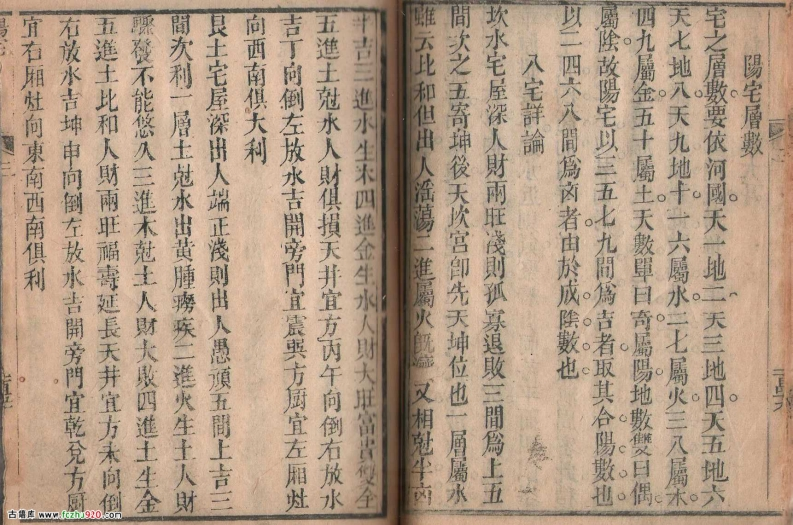 陽宅層數
宅之層數要依河圖天一地二天三地四天五地六
天七地八天九地十一六屬水二七屬火三八屬木
四九屬金五十屬土天數單曰奇屬陽地數雙曰偶
屬陰故陽宅以三五七九間為吉者取其合陽數也
以二四六八間為凶者由於成陰數也
八宅詳論
坎水宅屋深人財兩旺淺則孤寡退敗三間為上五
間次之五寄坤後天坎宮卽先天坤位也一層屬水
雖云比和但出人淫蕩二進屬火 又相尅生
半吉三進水生木四進金生水人財大旺富貴雙全
五進土尅水人財俱損天井宜方丙午向倒右放水
吉丁向倒左放水吉開旁門宜震巽方厨宜左厢灶
向西南俱大利
艮土宅屋深出人端正淺則出人愚頑五間上吉三
間次利一層土尅水出黃腫癆疾二進火生土人財
驟發不能悠久三進木尅土人財大敗四進土生金
五進土比和人財兩旺福壽延長天井宜方未向倒
右放水吉坤申向倒左放水吉開旁門宜乾兌方厨
宜右厢灶向東南西南俱利
古籍库 www.fczha920.com